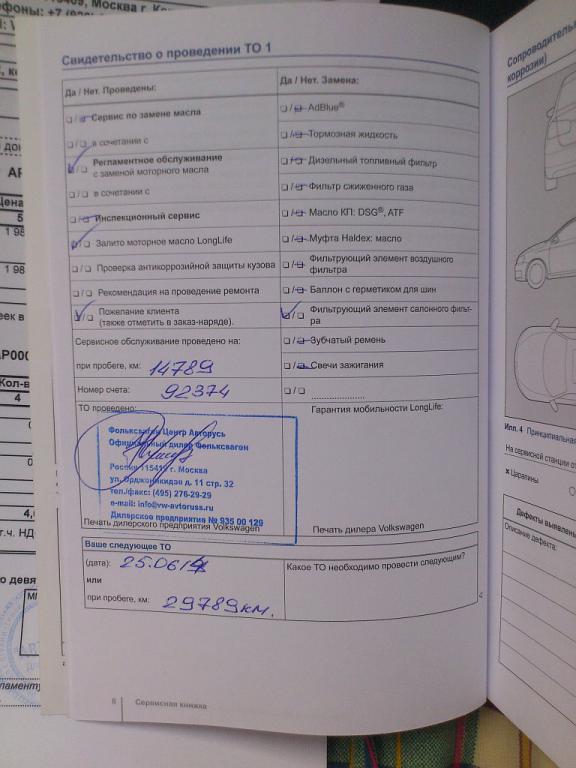 Свидетельство о проведении ТО 1
Да / Нет. Проведены:
❏ / ❏ Сервис по замене масла
❏ / ❏ в сочетании с
❏ / ❏ Регламентное обслуживание
с заменой моторного масла
❏ / ❏ в сочетании с
❏ / ❏ Инспекционный сервис
❏ / ❏ Залито моторное масло LongLife
❏ / ❏ Проверка антикоррозийной защиты кузова
❏ / ❏ Рекомендация на проведение ремонта
❏ / ❏ Пожелание клиента
(также отметить в заказ-наряде).
Сервисное обслуживание проведено на:
при пробеге, км: 14789
Номер счета: 92374
Да / Нет. Замена:
❏ / ❏ AdBlue®
❏ / ❏ Тормозная жидкость
❏ / ❏ Дизельный топливный фильтр
❏ / ❏ Фильтр сжиженного газа
❏ / ❏ Масло КП: DSG®, ATF
❏ / ❏ Муфта Haldex: масло
❏ / ❏ Фильтрующий элемент воздушного
фильтра
❏ / ❏ Баллон с герметиком для шин
❏ / ❏ Фильтрующий элемент салонного фильт-
ра
❏ / ❏ Зубчатый ремень
❏ / ❏ Свечи зажигания
❏ / ❏ ....................
ТО проведено:
Фольксваген Центр Авторусь
Официальный дилер Фольксваген
Россия 115419 г. Москва
ул. Орджоникидзе д. 11 стр. 32
тел./факс: (495) 276-29-29
e-mail: info@vw-avtoruss.ru
Дилерское предприятие № 935 00 129
Печать дилерского предприятия Volkswagen
Гарантия мобильности LongLife:
Печать дилера Volkswagen
Ваше следующее ТО
(дата): 25.06.14
или
при пробеге, км: 29789км.
Какое ТО необходимо провести следующим?
8 Сервисная книжка
Илл. 4 Принципиальная
На сервисной станции о
× Царапины
Описание дефекта: